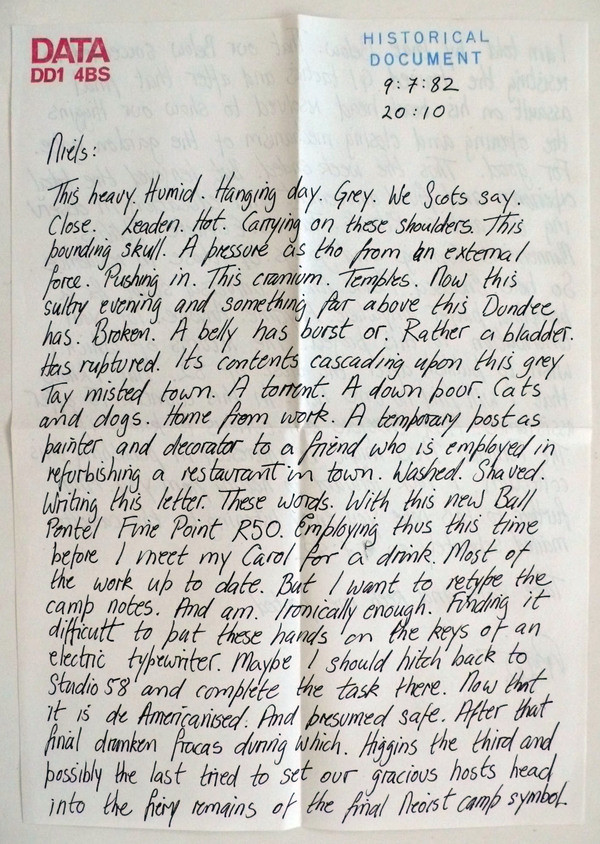 DATA
DD1 4BS
HISTORICAL
DOCUMENT
9:7:82
20:10
Niels:
This heavy. Humid. Hanging day. Grey. We Scots say
Close. Leaden. Hot. Carrying on these shoulders. This
pounding skull. A pressure as tho from an external
force. Pushing in. This cranium. Temples. Now this
sultry evening and something far above this Dundee
has. Broken. A belly has burst or. Rather a bladder.
Has ruptured. Its contents cascading upon this grey
Tay misted town. A torrent. A down pour. Cats
and dogs. Home from work. A temporary post as
painter and decorator to a friend who is employed in
refurbishing a restaurant in town. Washed. Shaved.
Writing this letter. These words. With this new Ball
Pentel Fine Point R50. Employing thus this time
before I meet my Carol for a drink. Most of
the work up to date. But I want to retype the
camp notes. And am. Ironically enough. Finding it
difficult to put these hands on the keys of an
electric typewriter. Maybe I should hitch back to
Studio 58 and complete the task there. Now that
it is de Americanised. And presumed safe. After that
final drunken fracas during which. Higgins the third and
possibly the last tried to set our gracious hosts head
into the fiery remains of the final Neoist camp symbol.